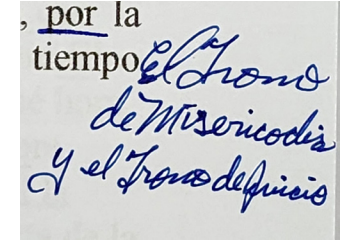 , por la
tiempo
El Trono
de Misericodia
y el Trono de Juicio